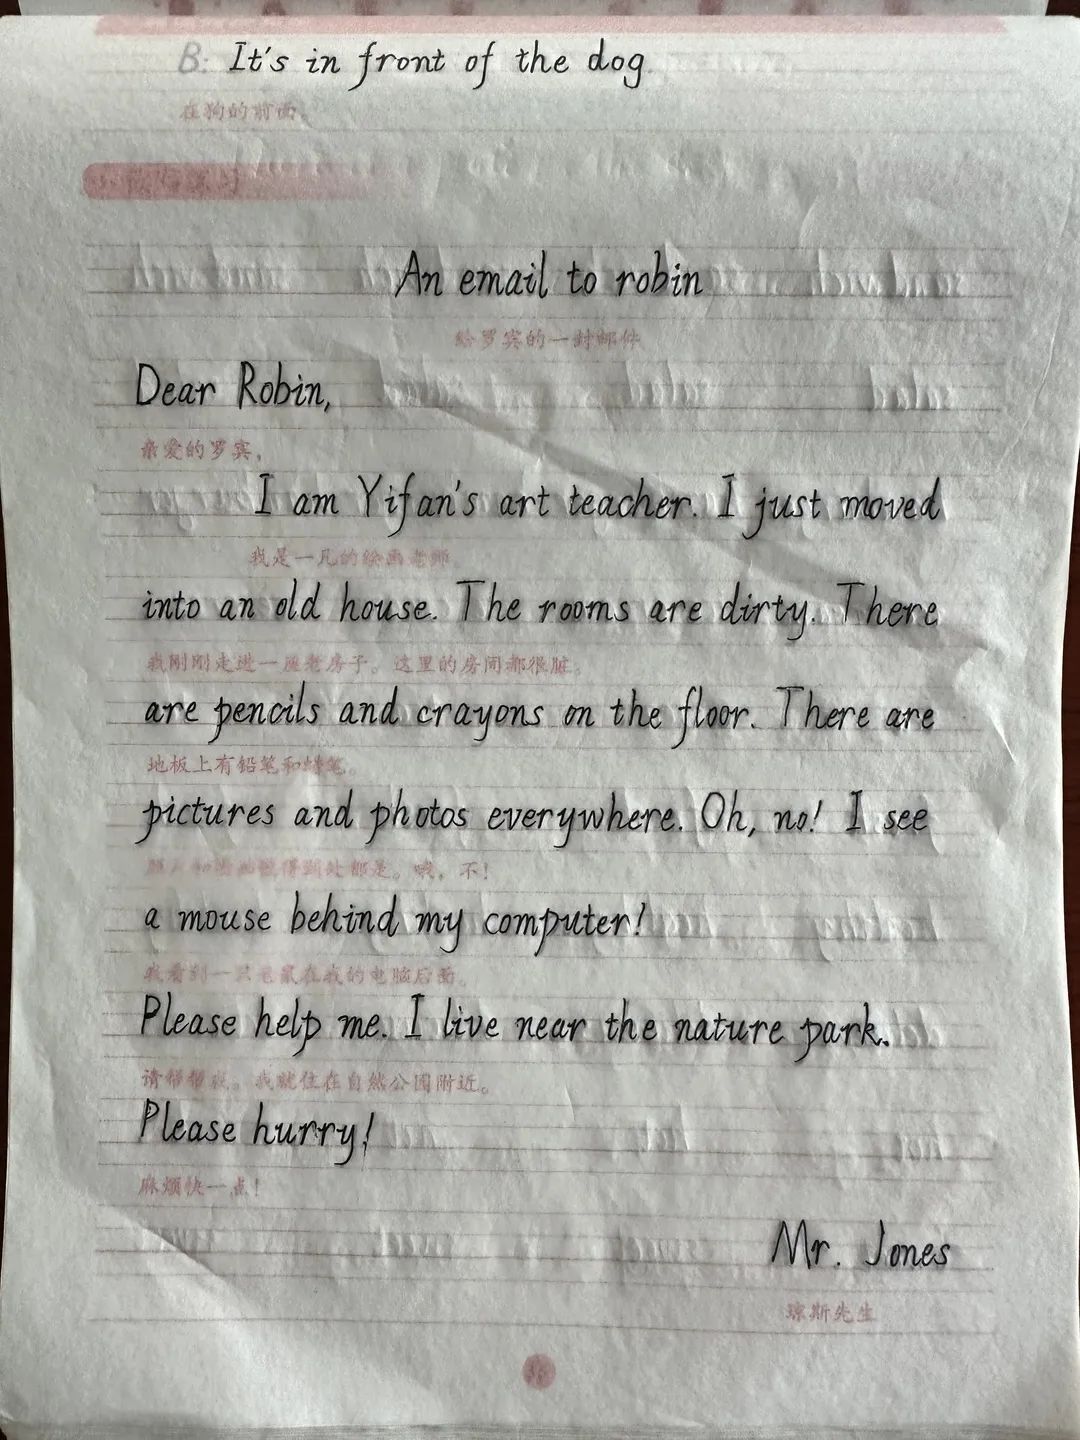 B: It's in front of the dog
在狗的前面。
An email to robin
给罗宾的一封邮件
Dear Robin,
亲爱的罗宾，
I am Yifan's art teacher. I just moved
我是一凡的绘画老师
into an old house. The rooms are dirty. There
我刚刚走进一座老房子。这里的房间都很脏。
are pencils and crayons on the floor. There are
地板上有铅笔和蜡笔。
pictures and photos everywhere. Oh, no! I see
得到处都是。哦，不！
a mouse behind my computer!
我看到一只老鼠在我的电脑后面。
Please help me. I live near the nature park.
请帮帮我。我就住在自然公园附近。
Please hurry!
麻烦快一点！
Mr. Jones
琼斯先生
36